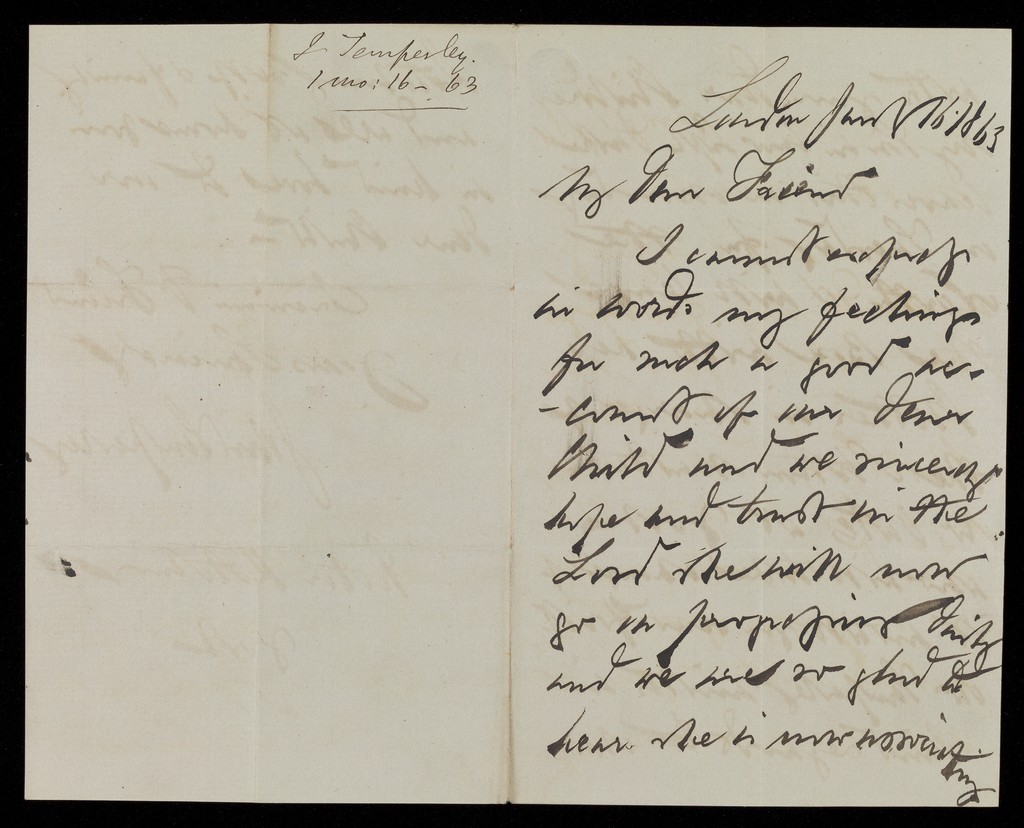 J Temperley.
1 mo: 16 - 63
London Jany 16. 1863
My Dear Friend
I cannot express
in words my feelings
for such a good ac-
-count of our Dear
Child and we sincerely
hope and trust in the
Lord she will now
go on progressing daily
and we are so glad to
hear she is now assisting